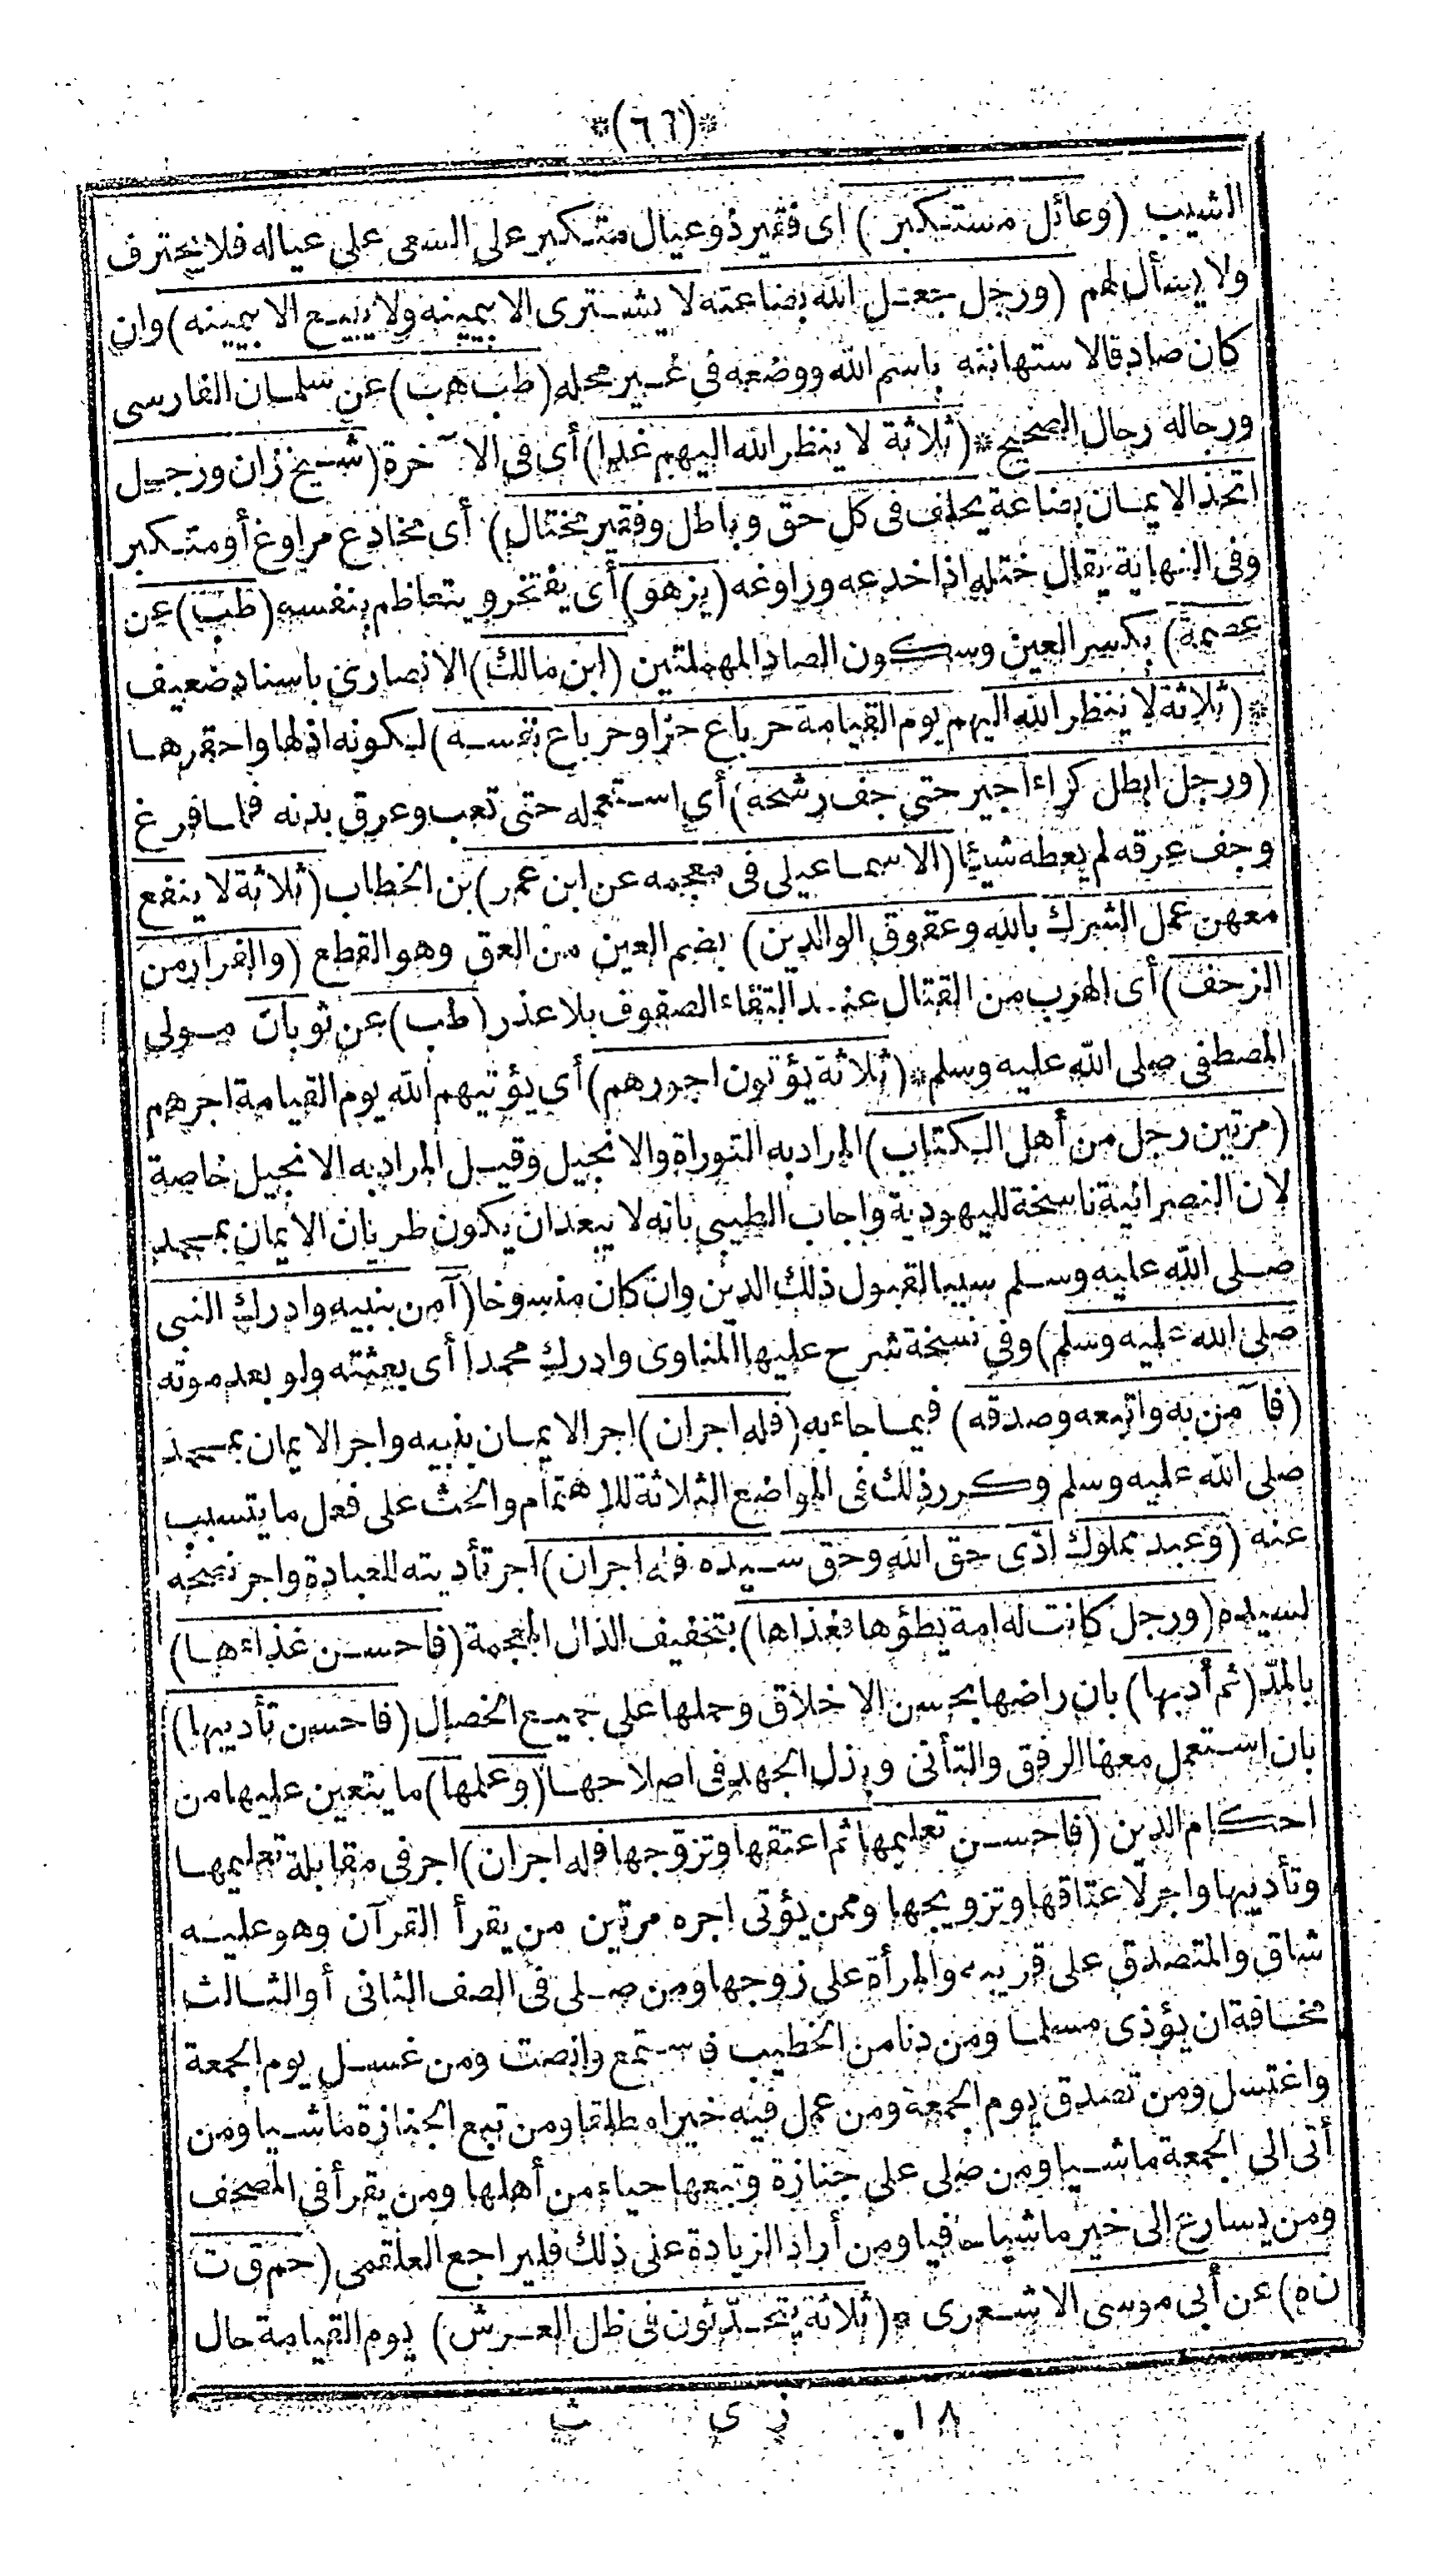 *(٦٦)*
الشيب (وعائل مستكبر) اى فقير ذو عيال متكبر على السعى على عياله فلا يحترف
ولا يسأل لهم (ورجل جعل الله بضاعته لا يشترى الا بيمينه ولا يبيع الا بيمينه) وان
كان صادقا لاستهانته باسم الله ووضعه فى غير محله (طب هب) عن سلمان الفارسى
ورجاله رجال الصحيح *(ثلاثة لا ينظر الله اليهم غدا) أى فى الآخرة (شيخ زان ورجل
اتخذ الايمان بضاعة يحلف فى كل حق وباطل وفقير مختال) أى مخادع مراوغ أو متكبر
وفى النهاية يقال ختله اذا خدعه وراوغه (يزهو) أى يفتخر ويتعاظم بنفسه (طب) عن
عصمة) بكسر العين وسكون الصاد المهملتين (ابن مالك) الانصارى باسناد ضعيف
*(ثلاثة لا ينظر الله اليهم يوم القيامة حر باع حرا وحر باع نفسه) لكونه اذلها واحقرها
(ورجل ابطل كراء اجير حتى جف رشحه) أى استعمله حتى تعب وعرق بدنه فلما فرغ
وجف عرقه لم يعطه شيئا (الاسماعيلى فى معجمه عن ابن عمر) بن الخطاب (ثلاثة لا ينفع
معهن عمل الشرك بالله وعقوق الوالدين) بضم العين من العق وهو القطع (والفرار من
الزحف) أى الهرب من القتال عند التقاء الصفوف بلا عذر (طب) عن ثوبان مولى
المصطفى صلى الله عليه وسلم *(ثلاثة يؤتون اجورهم) أى يؤتيهم الله يوم القيامة اجرهم
(مرتين رجل من أهل الكتاب) المراد به التوراة والانجيل وقيل المراد به الانجيل خاصة
لان النصرانية ناسخة لليهودية واجاب الطيبى بانه لا يبعد ان يكون طريان الايمان بمحمد
صلى الله عليه وسلم سببا لقبول ذلك الدين وان كان منسوخا (آمن بنبيه وادرك النبى
صلى الله عليه وسلم) وفى نسخة شرح عليها المناوى وادرك محمدا أى بعثته ولو بعد موته
(فآمن به واتبعه وصدقه) فيما جاء به (فله اجران) اجر الايمان بنبيه واجر الايمان بمحمد
صلى الله عليه وسلم وكرر ذلك فى المواضع الثلاثة للاهتمام والحث على فعل ما يتسبب
عنه (وعبد مملوك ادّى حق الله وحق سيده فله اجران) اجر تأديته للعبادة واجر نصحه
لسيده (ورجل كانت له امة يطؤها فغذاها) بتخفيف الذال المعجمة (فاحسن غذاءها)
بالمدّ (ثم أدبها) بان راضها بحسن الاخلاق وحملها على جميع الخصال (فاحسن تأديبها)
بان استعمل معها الرفق والتأنى وبذل الجهد فى اصلاحها (وعلمها) ما يتعين عليها من
احكام الدين (فاحسن تعليمها ثم اعتقها وتزوّجها فله اجران) اجر فى مقابلة تعليمها
وتأديبها واجر لاعتاقها وتزويجها وممن يؤتى اجره مرتين من يقرأ القرآن وهو عليه
شاق والمتصدق على قريبه والمرأة على زوجها ومن صلى فى الصف الثانى أو الثالث
مخافة ان يؤذى مسلما ومن دنا من الخطيب فاستمع وانصت ومن غسل يوم الجمعة
واغتسل ومن تصدق يوم الجمعة ومن عمل فيه خيرا مطلقا ومن تبع الجنازة ماشيا ومن
أتى الى الجمعة ماشيا ومن صلى على جنازة وتبعها حياء من أهلها ومن يقرأ فى المصحف
ومن يسارع الى خير ماشيا حافيا ومن أراد الزيادة عنى ذلك فليراجع العلقمى (حم ق ت
ن ه) عن أبى موسى الاشعرى *(ثلاثة يتحدّثون فى ظل العرش) يوم القيامة حال
١٨ . زى ث